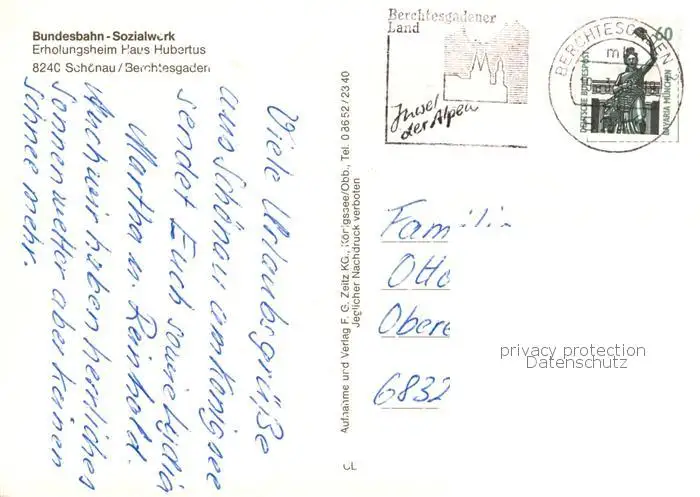 Bundesbahn - Sozialwerk
Erholungsheim Haus Hubertus
8240 Schönau / Berchtesgaden
Viele Urlaubsgrüße
aus Schönau am Königsee
sendet Euch sowie Lydia
Martha u. Reinhold.
Auch wir haben herrliches
Sonnenwetter aber keinen
Schnee mehr.
Aufnahme und Verlag F. G. Zeitz KG., Königssee/Obb., Tel. 08652 / 23 40
Jeglicher Nachdruck verboten
CL
Berchtesgadener
Land
Insel
der Alpen
BERCHTESGADEN
60
DEUTSCHE BUNDESPOST
BAVARIA MÜNCHEN
Familie
Otto
Obere
6832
privacy protection
Datenschutz